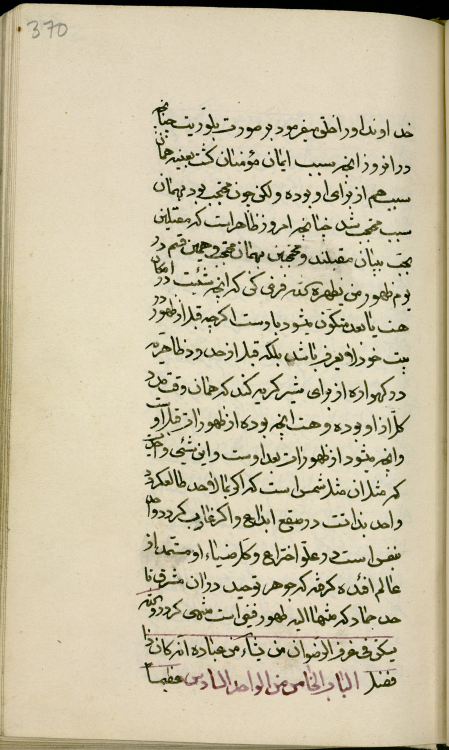 370
خداوند او را خلق میفرمود بر صورت بلوریت چنانچه
در انروز انچه سبب ایمان مؤمنان گشت بعینه همان
سبب هم از برای او بوده ولکن چون محتجب بود بهمان
سبب محتجب شد چنانچه امروز ظاهر است که مقبلین
بچه بیان مقبلند و محتجبین بهمان محتجب و همین قسم در
یوم ظهور من یظهره الله فرض کن که انچه شیئیت در امکان
هست یا بعد متکون میشود باوست اگرچه قبل از ظهور در
بیت خود لا یعرف باشد بلکه قبل از حد و ظاهریه
در گهواره از برای شیر گریه کند که همان وقت مرد
کل از او بوده و هست انچه بوده از ظهورات قبل اوست
وانچه میشود از ظهورات بعد اوست واین شیئی واحد است
که مثل ان مثل شمس است که اگر بمالا نهایه طالع گردد
واحد بذاتست در صقع ابداع و اگر غارب گردد واحد
بنفس است در علو اختراع و کل ضیاء او مستمد از
عالم افئده گرفته که جوهر توحید در ان مشرق تا
حد جماد که منتها الیه ظهور فیض است منتهی گردد ولله
یکن فی غرف الرضوان من یشاء من عباده انه کان ذا
فضل الباب الخامس من الواحد السادس عظیما